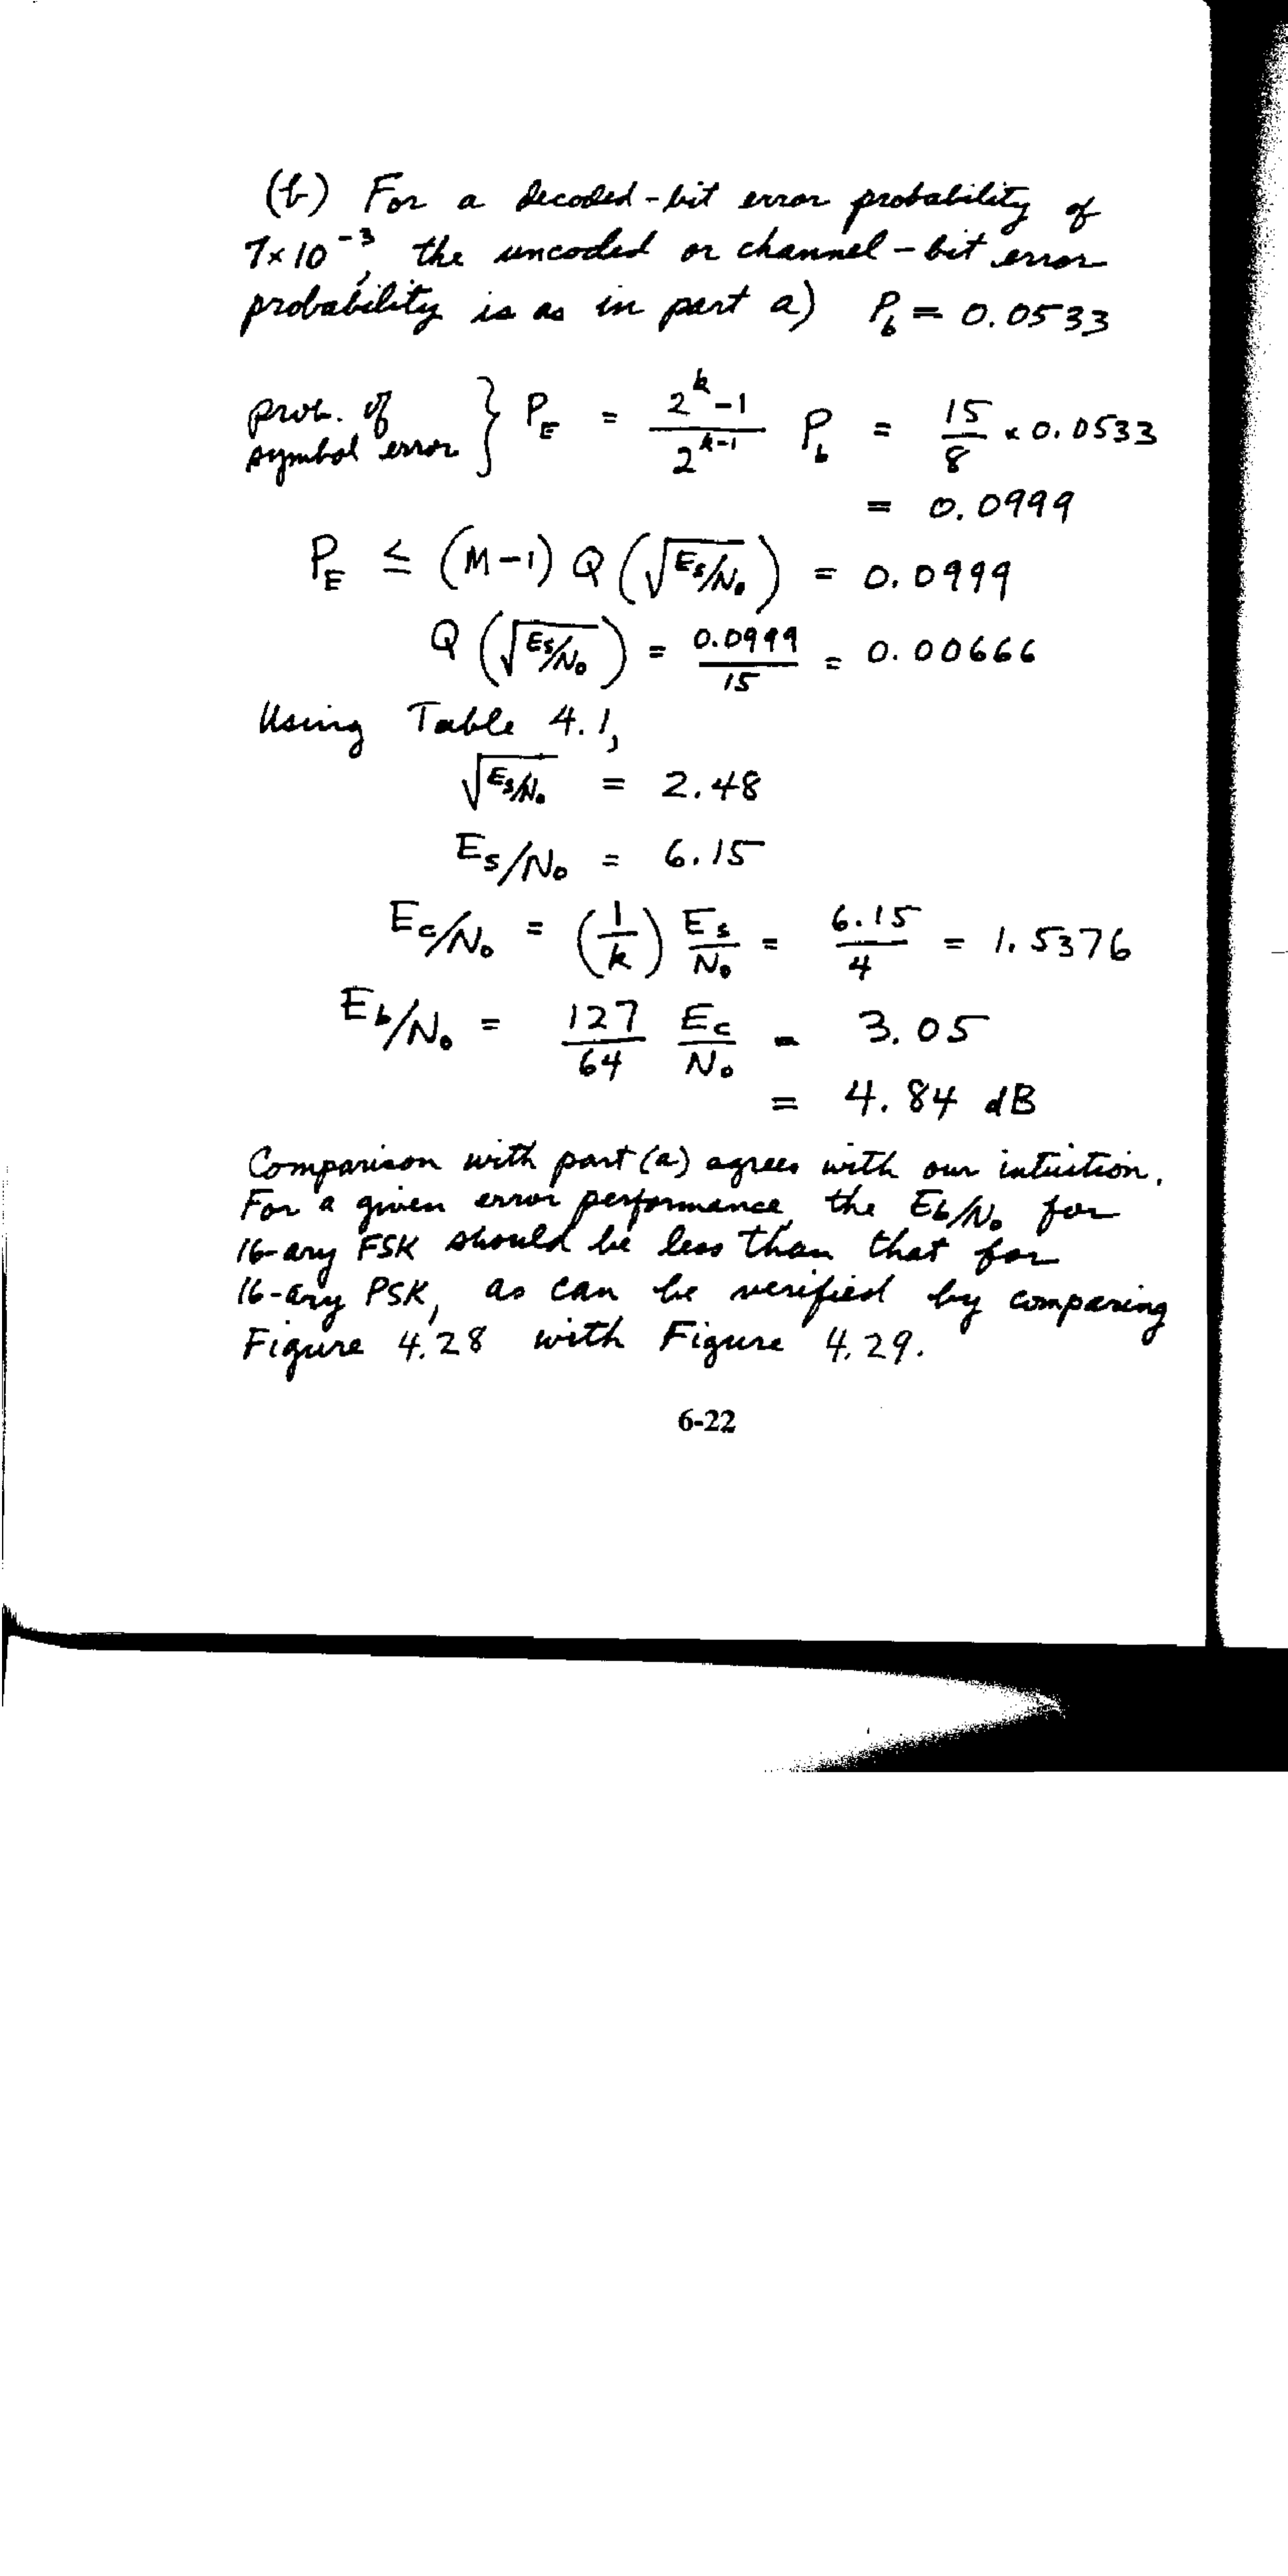 (b) For a decoded-bit error probability of
7×10⁻³, the uncoded or channel-bit error
probability is as in part a) P_b = 0.0533
prob. of symbol error } P_E = (2^k - 1)/(2^(k-1)) P_b = 15/8 × 0.0533
= 0.0999
P_E ≤ (M-1) Q(√(E_s/N_0)) = 0.0999
Q(√(E_s/N_0)) = 0.0999/15 = 0.00666
Using Table 4.1,
√(E_s/N_0) = 2.48
E_s/N_0 = 6.15
E_c/N_0 = (1/k) E_s/N_0 = 6.15/4 = 1.5376
E_b/N_0 = 127/64 E_c/N_0 = 3.05
= 4.84 dB
Comparison with part (a) agrees with our intuition.
For a given error performance, the E_b/N_0 for
16-ary FSK should be less than that for
16-ary PSK, as can be verified by comparing
Figure 4.28 with Figure 4.29.
6-22